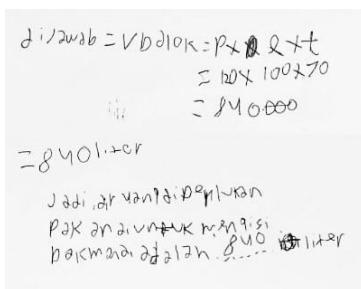 dijawab = V balok = p x l x t
= 120 x 100 x 70
= 840.000
= 840 liter
Jadi, air yang diperlukan
Pak an untuk mengisi
bak mandi adalah 840 liter